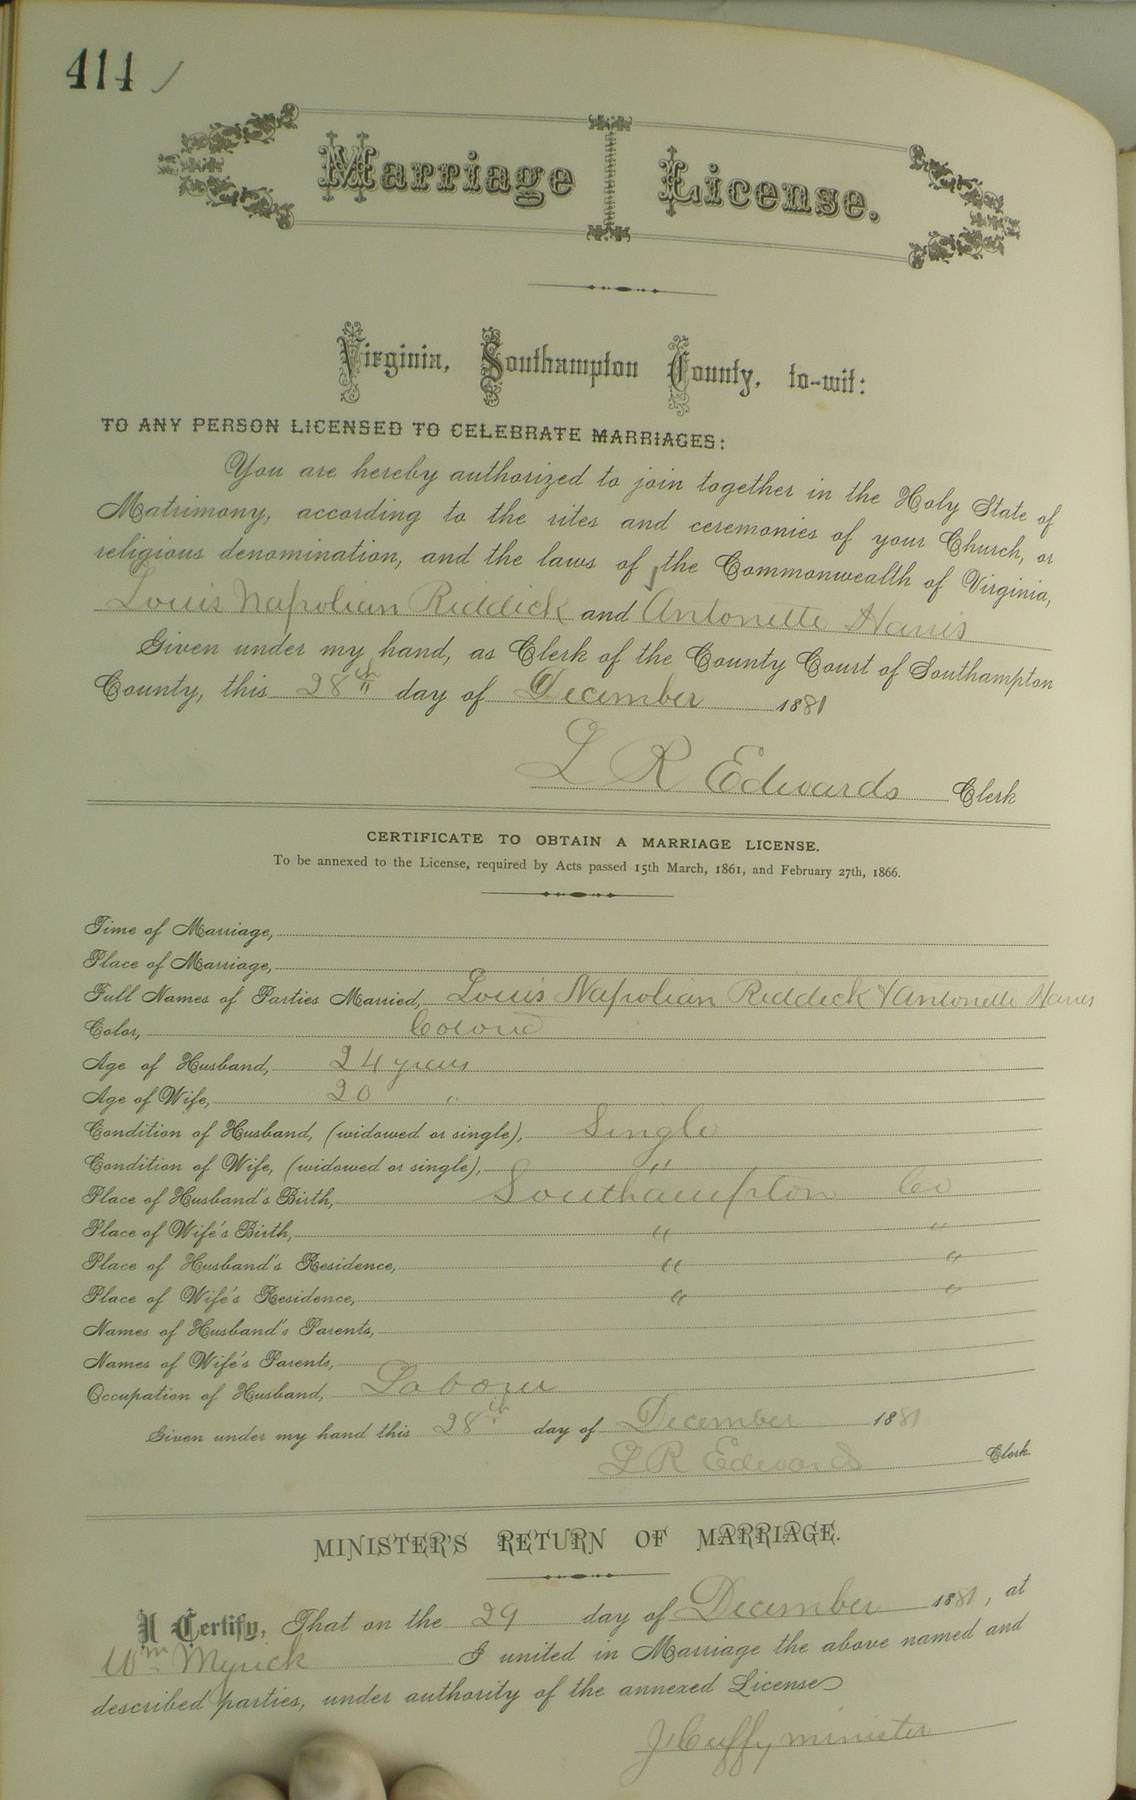 414
Marriage License.
Virginia, Southampton County, to-wit:
TO ANY PERSON LICENSED TO CELEBRATE MARRIAGES:
You are hereby authorized to join together in the Holy State of
Matrimony, according to the rites and ceremonies of your Church, or
religious denomination, and the laws of the Commonwealth of Virginia,
Louis Napolian Riddick and Antonette Harris
Given under my hand, as Clerk of the County Court of Southampton
County, this 28th day of December 1881
L R Edwards Clerk
CERTIFICATE TO OBTAIN A MARRIAGE LICENSE.
To be annexed to the License, required by Acts passed 15th March, 1861, and February 27th, 1866.
Time of Marriage,
Place of Marriage,
Full Names of Parties Married, Louis Napolian Riddick & Antonette Harris
Color, Colored
Age of Husband, 24 years
Age of Wife, 20 "
Condition of Husband, (widowed or single), Single
Condition of Wife, (widowed or single), "
Place of Husband's Birth, Southampton Co
Place of Wife's Birth, " "
Place of Husband's Residence, " "
Place of Wife's Residence, " "
Names of Husband's Parents,
Names of Wife's Parents,
Occupation of Husband, Laborer
Given under my hand this 28th day of December 1881
L R Edwards Clerk
MINISTER'S RETURN OF MARRIAGE.
I Certify, That on the 29 day of December 1881, at
Wm Myrick I united in Marriage the above named and
described parties, under authority of the annexed License
J Cuffy minister